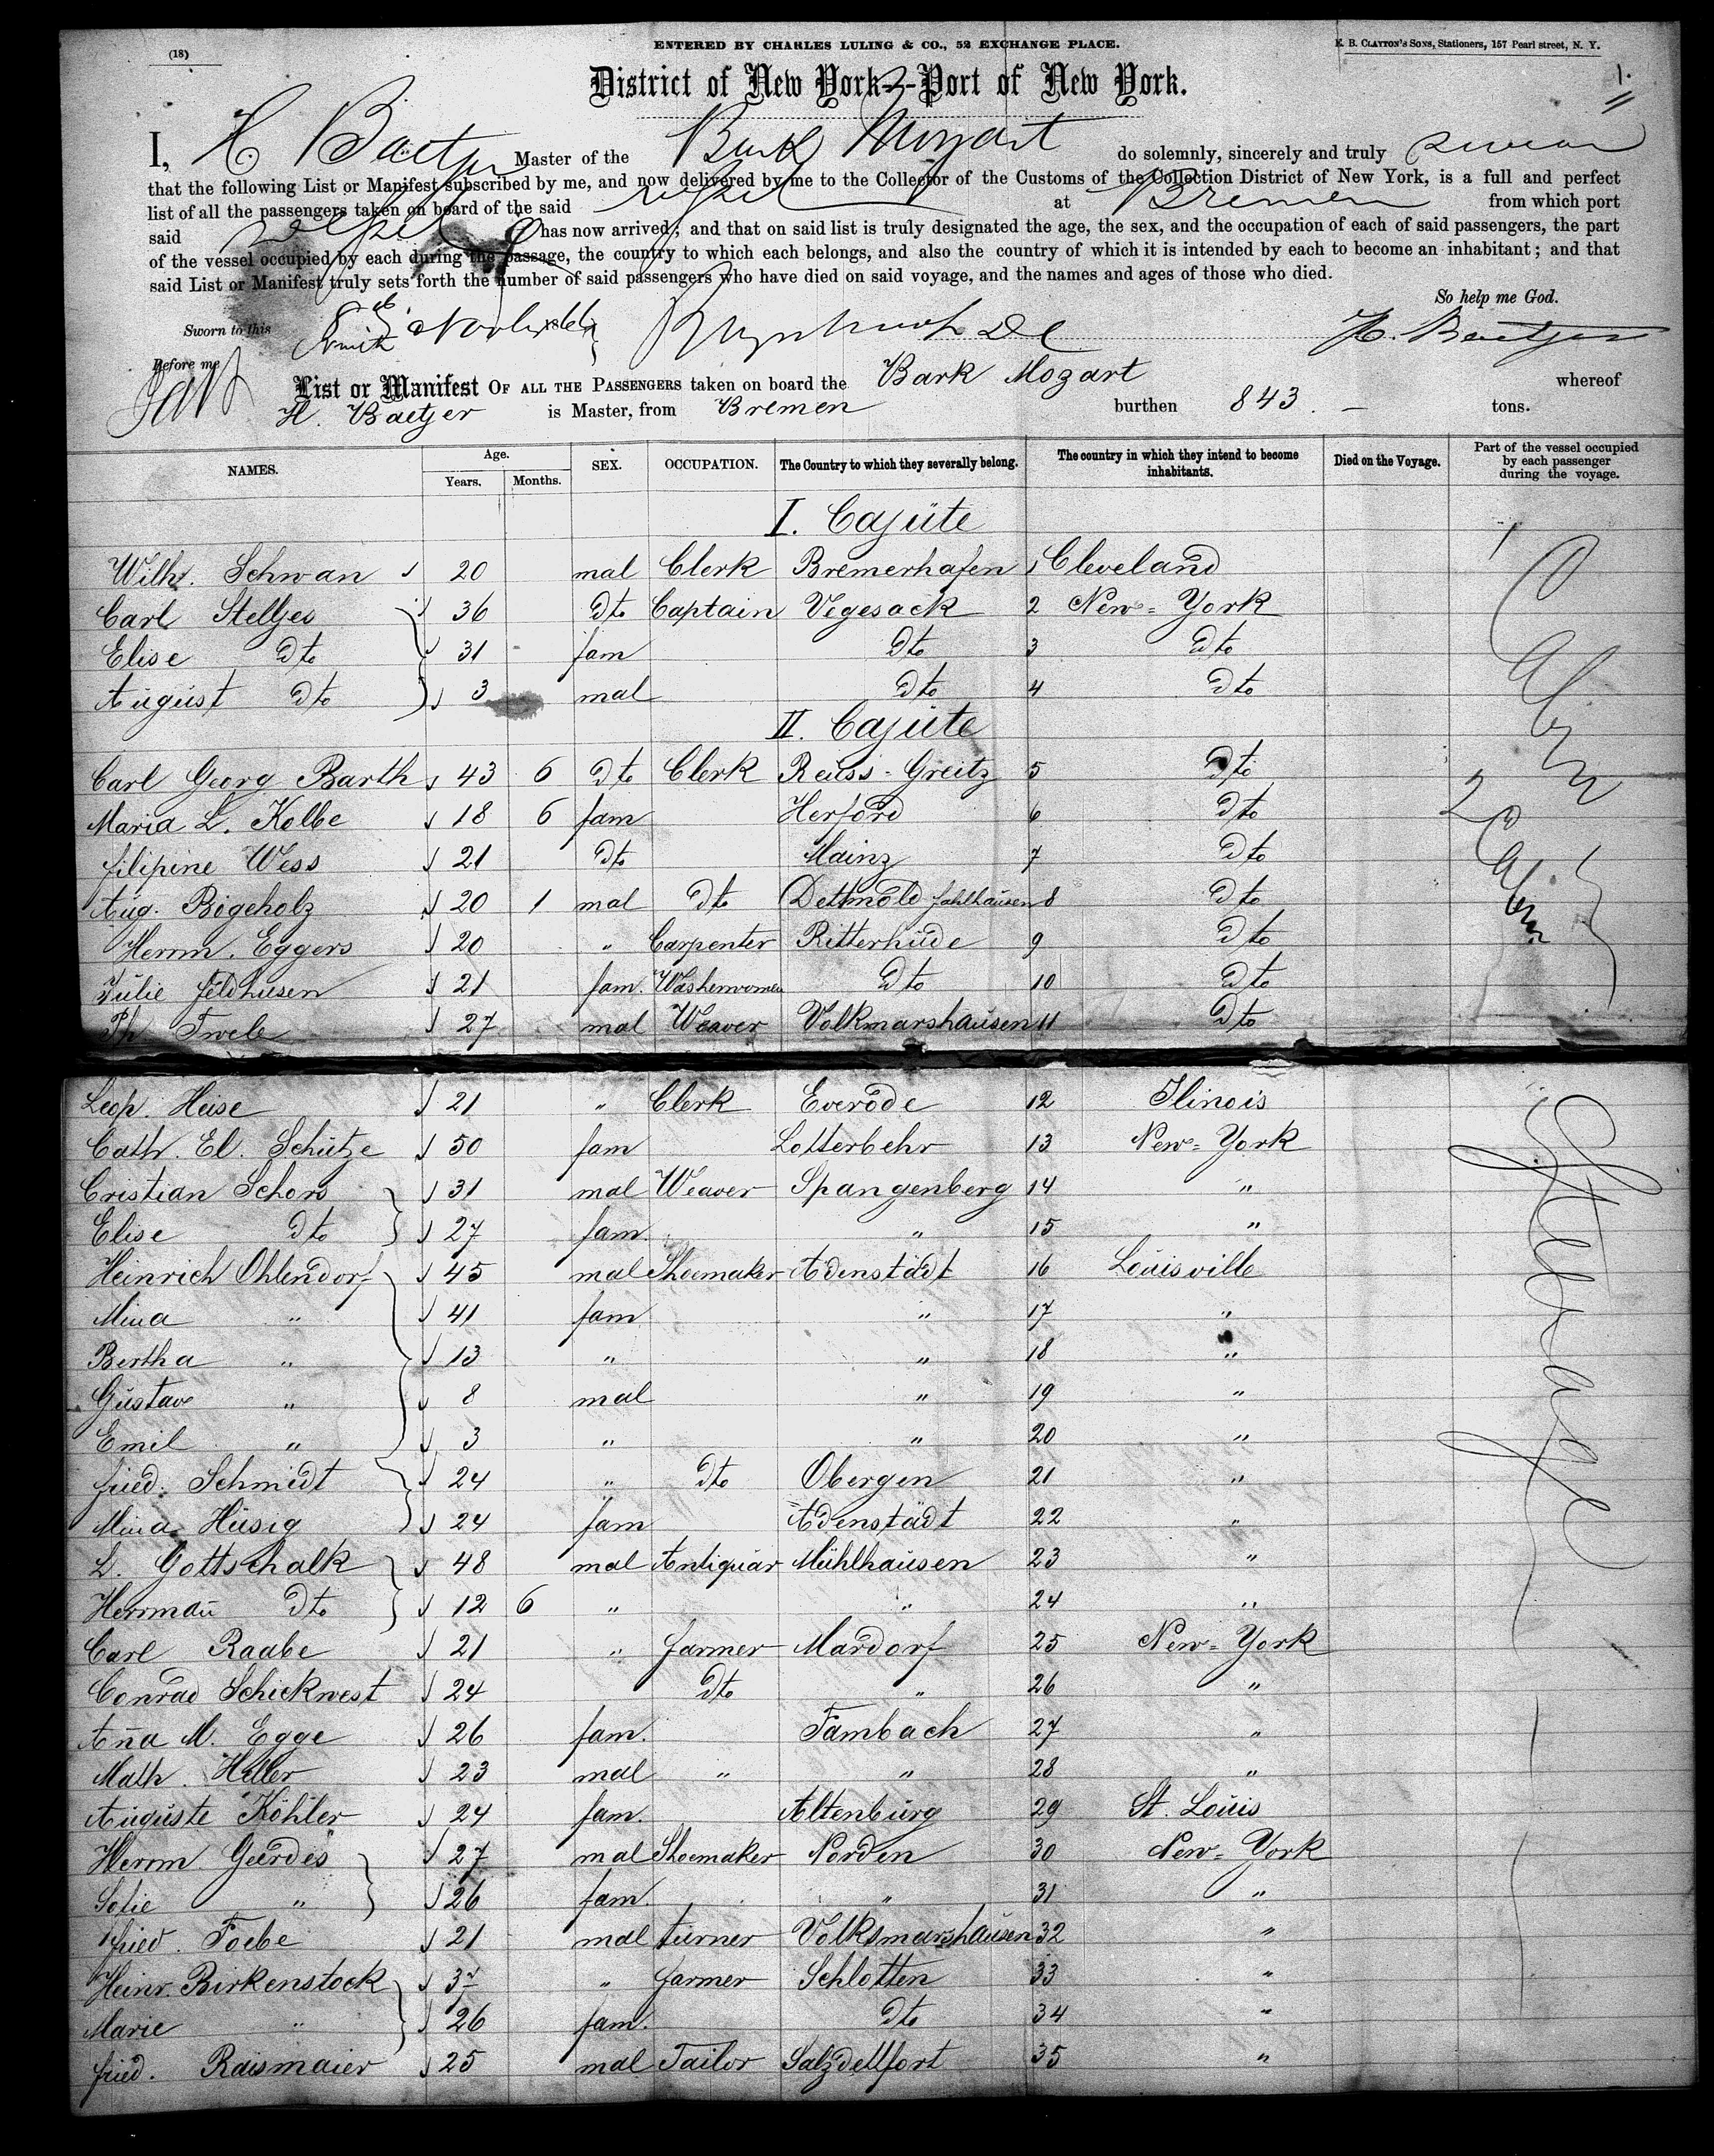 (18)
ENTERED BY CHARLES LULING & CO., 52 EXCHANGE PLACE.
E. B. CLAYTON'S SONS, Stationers, 157 Pearl street, N. Y.
1.
District of New York--Port of New York.
I, H. Baetjer Master of the Bark Mozart do solemnly, sincerely and truly swear
that the following List or Manifest subscribed by me, and now delivered by me to the Collector of the Customs of the Collection District of New York, is a full and perfect
list of all the passengers taken on board of the said vessel at Bremen from which port
said vessel has now arrived; and that on said list is truly designated the age, the sex, and the occupation of each of said passengers, the part
of the vessel occupied by each during the passage, the country to which each belongs, and also the country of which it is intended by each to become an inhabitant; and that
said List or Manifest truly sets forth the number of said passengers who have died on said voyage, and the names and ages of those who died.
So help me God.
Sworn to this
H. Baetjer
Before me
List or Manifest OF ALL THE PASSENGERS taken on board the Bark Mozart whereof
H. Baetjer is Master, from Bremen burthen 843. – tons.
NAMES. Age. Years. Months. SEX. OCCUPATION. The Country to which they severally belong. The country in which they intend to become inhabitants. Died on the Voyage. Part of the vessel occupied by each passenger during the voyage.
I. Cajüte
Wilh. Schwan 20 mal Clerk Bremerhafen 1 Cleveland
Carl Stelljes 36 Dto Captain Vegesack 2 New-York
Elise Dto 31 fam Dto 3 Dto
August Dto 3 mal Dto 4 Dto
Cabin
II. Cajüte
Carl Georg Barth 43 6 Dto Clerk Reuss-Greitz 5 Dto
Maria L. Kolbe 18 6 fam Herford 6 Dto
filipine Wess 21 Dto Mainz 7 Dto
Aug. Bögeholz 20 1 mal Dto Dettmold fahlhausen 8 Dto
Herm. Eggers 20 " Carpenter Ritterhude 9 Dto
Julie feldhusen 21 fam. Washerwomen Dto 10 Dto
Ph. Twele 27 mal Weaver Volkmarshausen 11 Dto
2 Cabin
Leop. Heise 21 " Clerk Everode 12 Ilinois
Cath. El. Schütze 50 fam Lotterbehr 13 New-York
Cristian Schors 31 mal Weaver Spangenberg 14 "
Elise Dto 27 fam. " 15 "
Heinrich Ohlendorf 45 mal Shoemaker Adenstädt 16 Louisville
Mina " 41 fam " 17 "
Bertha " 13 " " 18 "
Gustav " 8 mal " 19 "
Emil " 3 " " 20 "
fried. Schmidt 24 " Dto Obergen 21 "
Mina Hüsig 24 fam Adenstädt 22 "
L. Gottschalk 48 mal Antiquar Mühlhausen 23 "
Herrmañ Dto 12 6 " " 24 "
Carl Raabe 21 " farmer Mardorf 25 New-York
Conrad Schickwest 24 Dto " 26 "
Aña M. Egge 26 fam. Fambach 27 "
Math. Heller 23 mal " " 28 "
Auguste Köhler 24 fam. Altenburg 29 St. Louis
Herm. Geerdes 27 mal Shoemaker Norden 30 New-York
Sofie " 26 fam. " 31 "
fried. Foebe 21 mal turner Volksmarshausen 32 "
Heinr. Birkenstock " farmer Schlotten 33 "
Marie " 26 fam. Dto 34 "
fried. Raismaier 25 mal Tailor Salzdettfort 35 "
Steerage